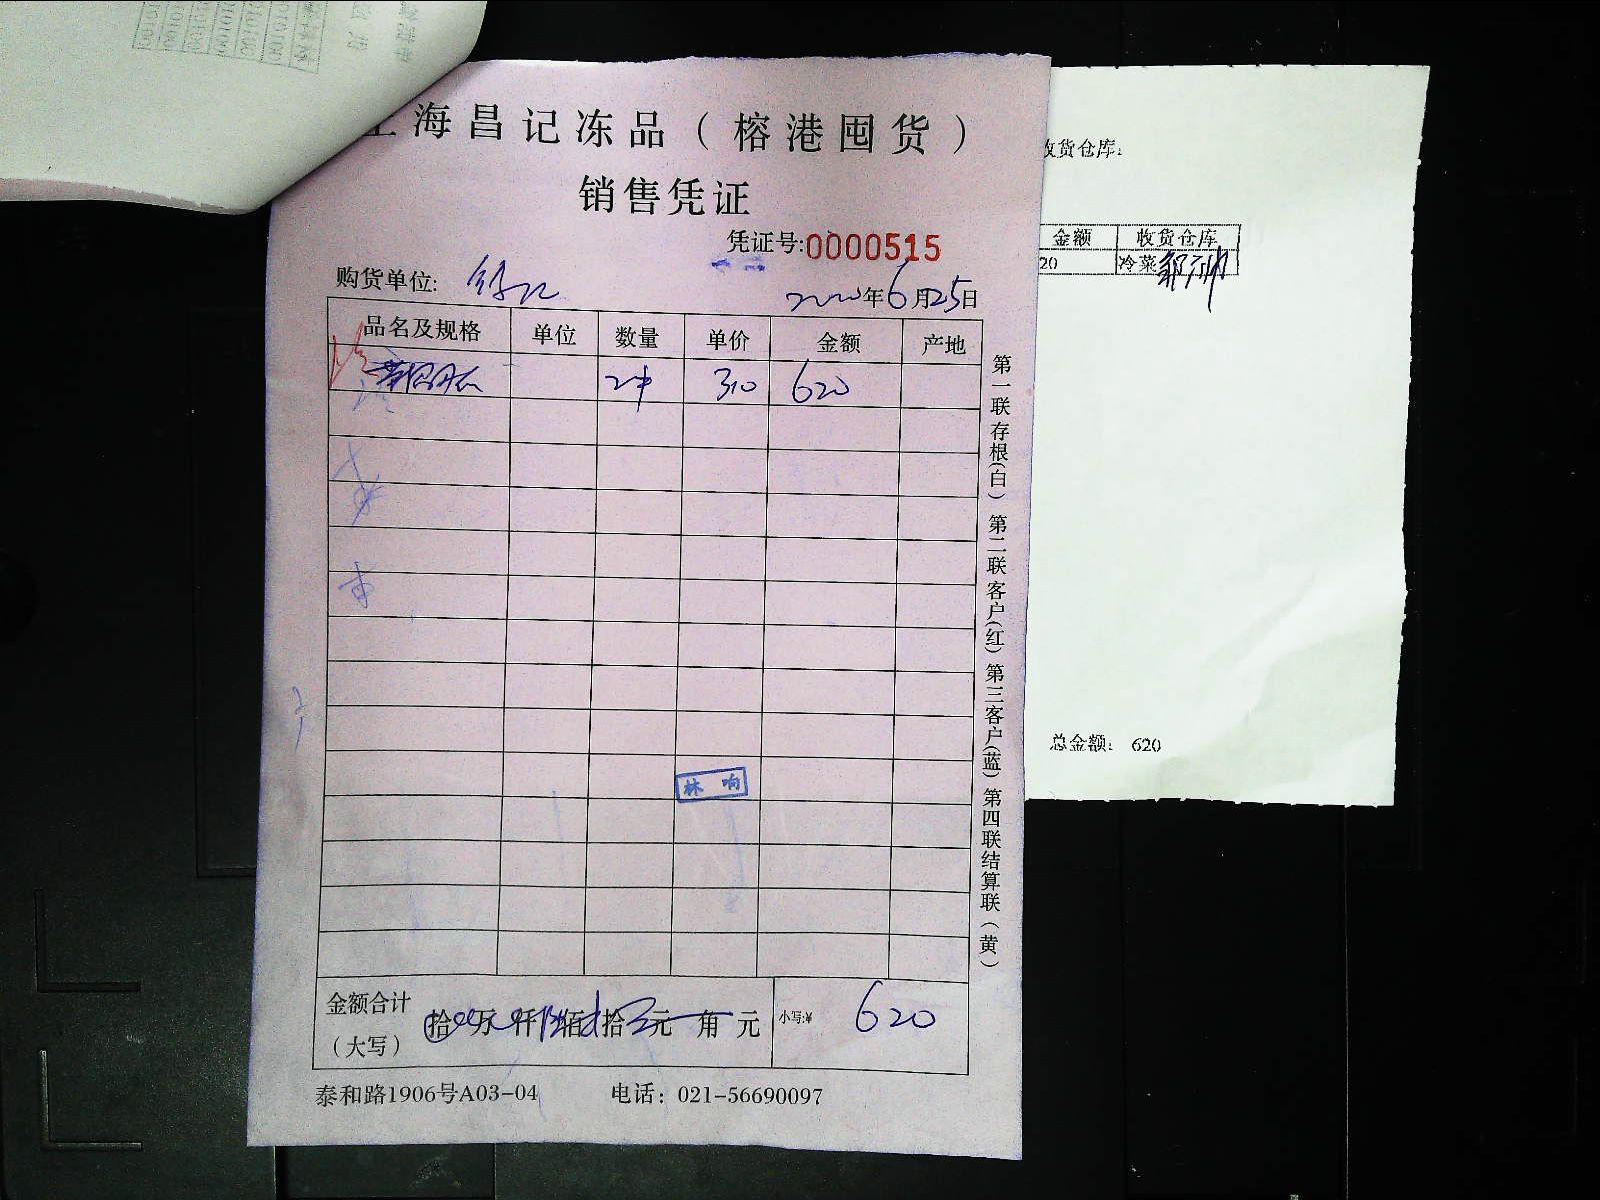 上海昌记冻品(榕港囤货)
销售凭证
凭证号:0000515
购货单位:
2020年6月25日
品名及规格 单位 数量 单价 金额 产地
2件 310 620
林响
金额合计(大写) 拾 万 仟 佰 拾 元 角 元 小写:¥ 620
泰和路1906号A03-04 电话:021-56690097
第一联存根(白) 第二联客户(红) 第三客户(蓝) 第四联结算联(黄)
收货仓库:
金额 收货仓库
20 冷菜
总金额: 620